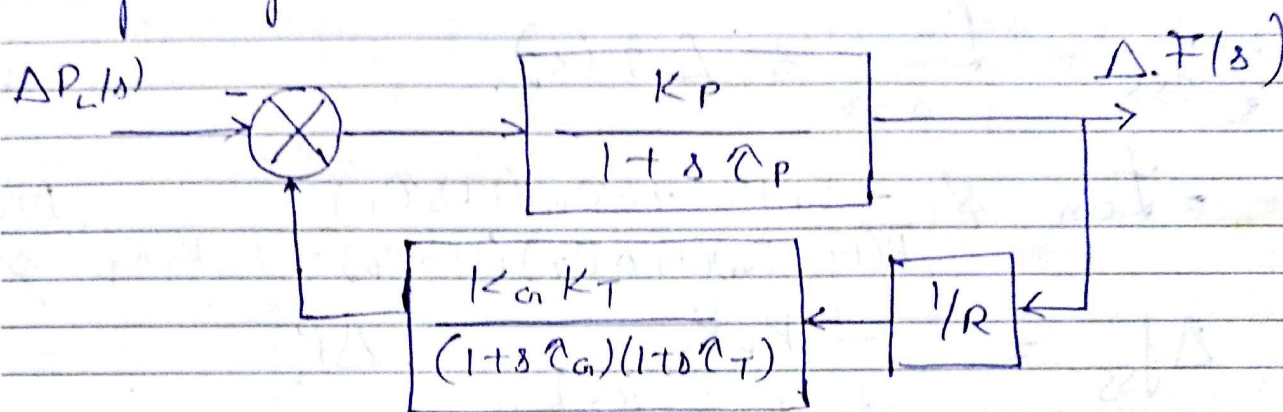 ΔP_L(s)
-
K_P
1 + s τ_P
Δ.F(s)
K_G K_T
(1+sτ_G)(1+sτ_T)
1/R